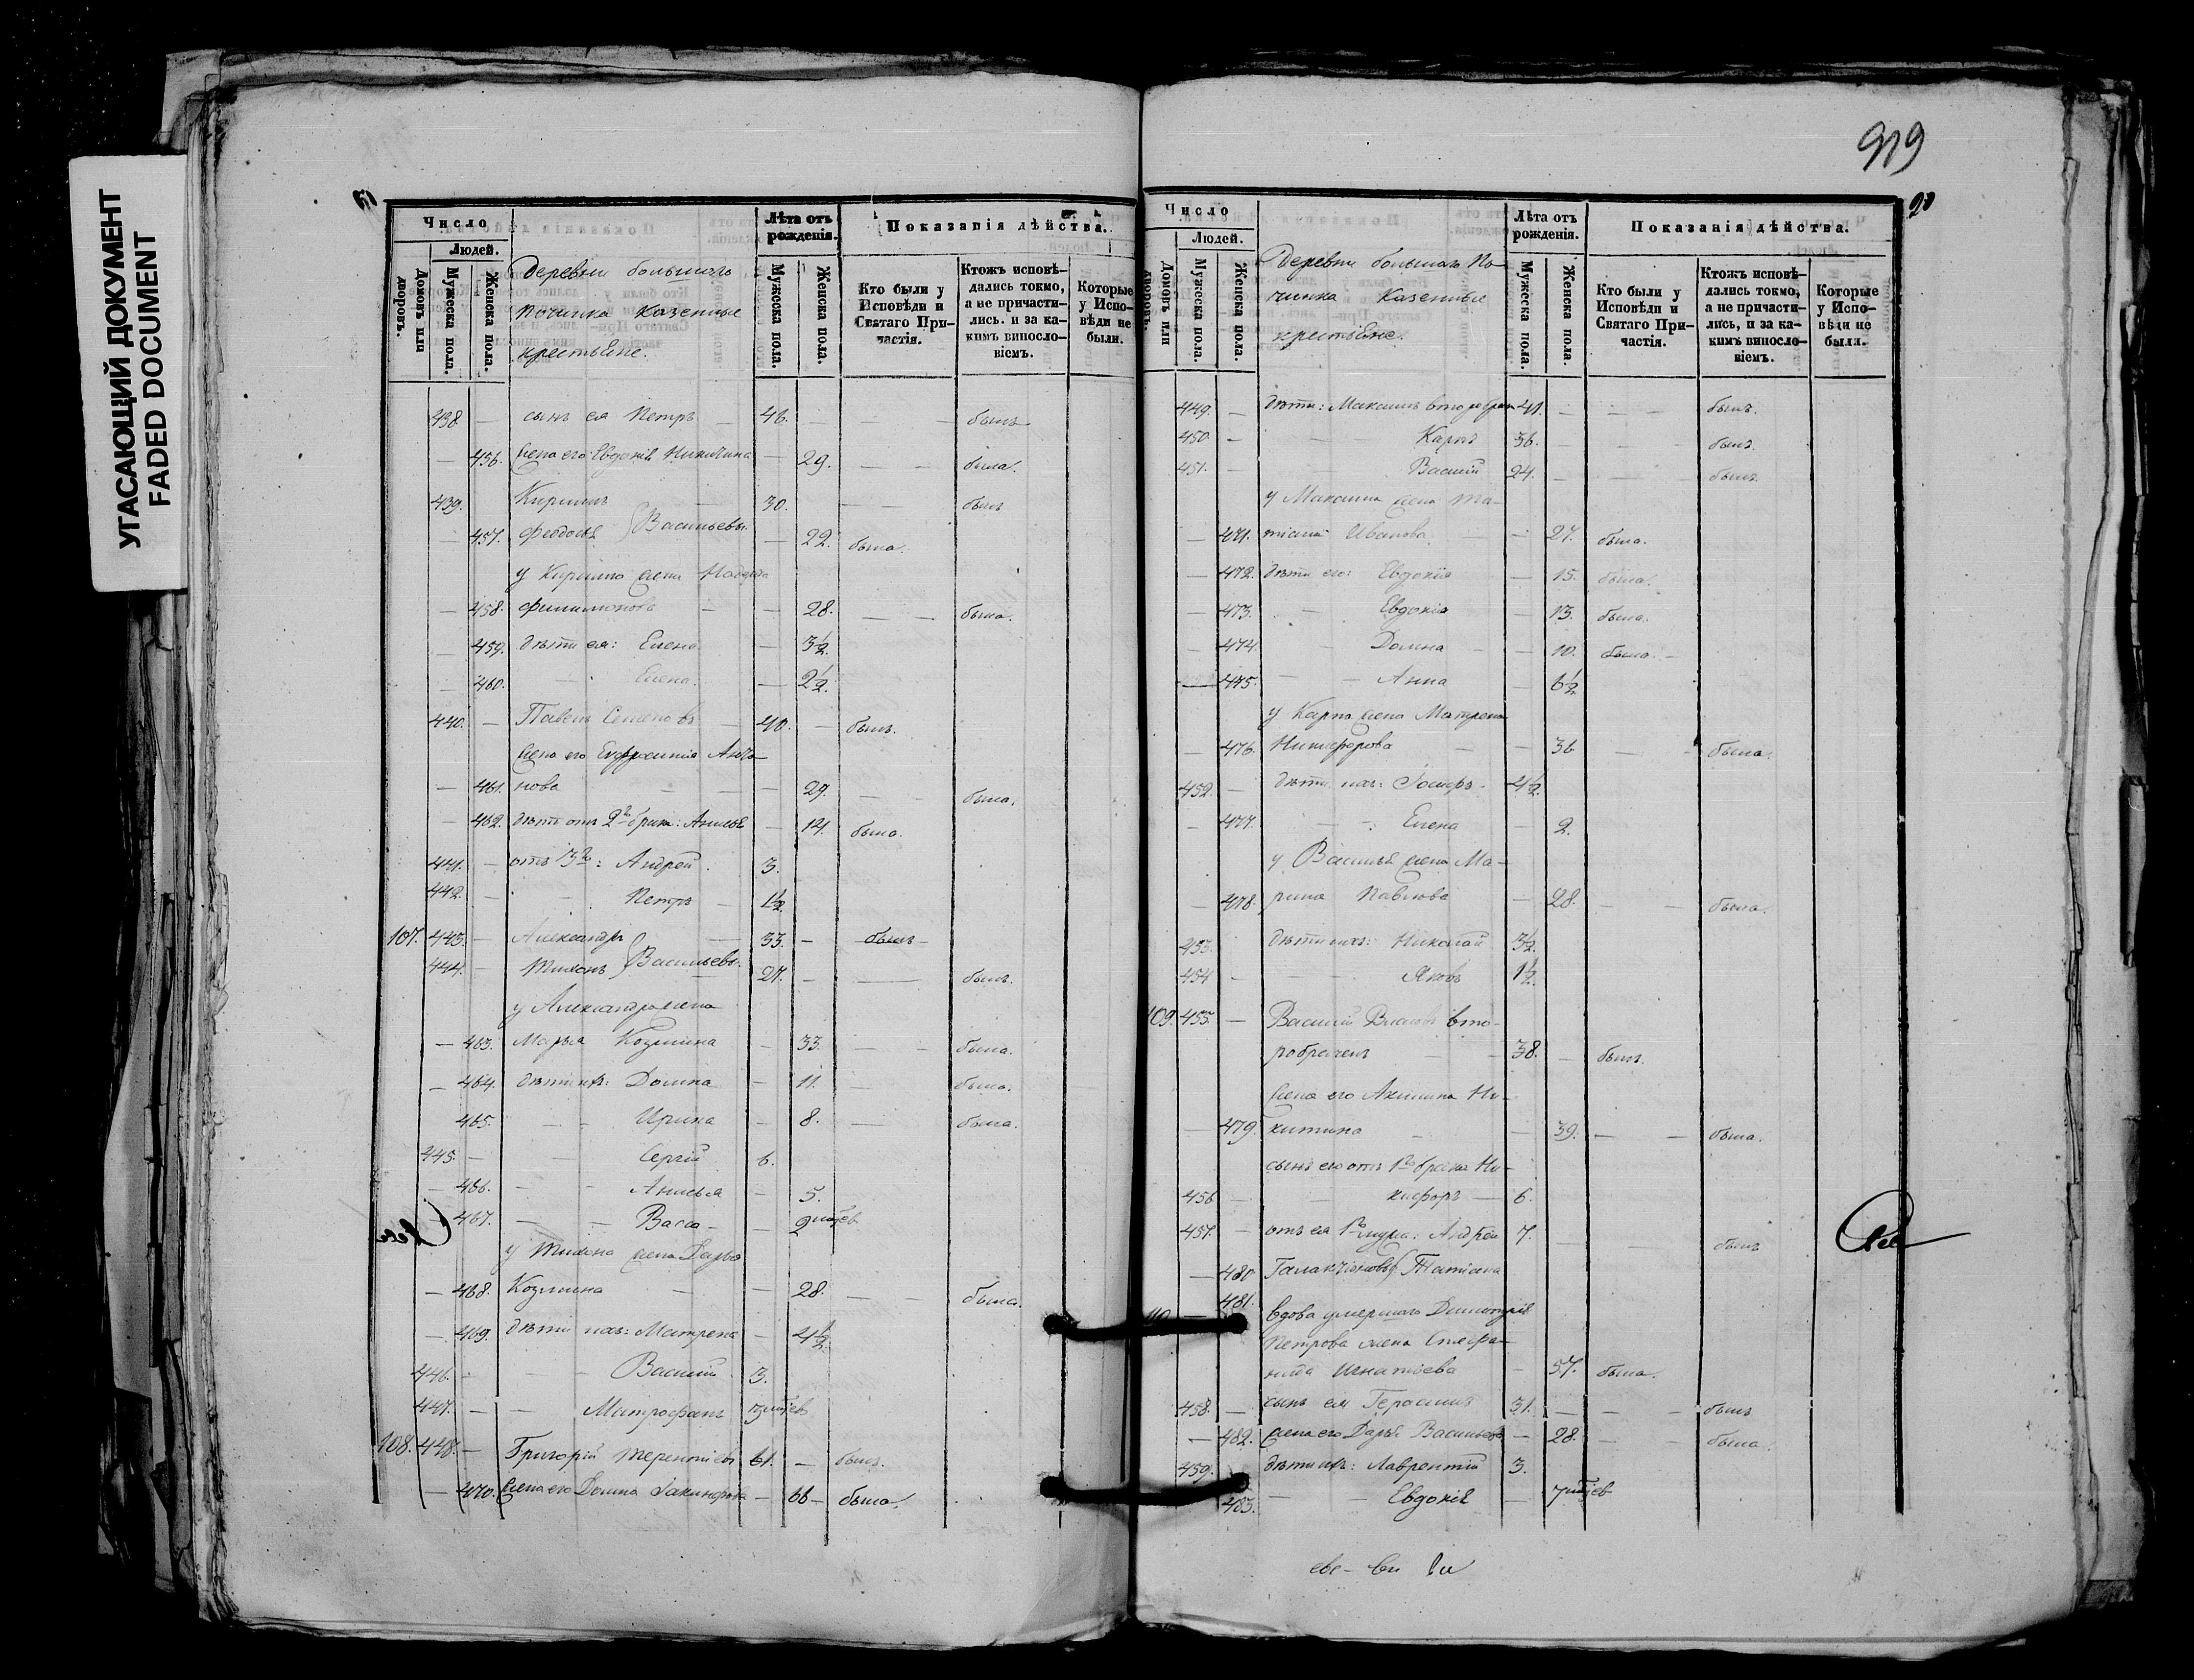 УГАСАЮЩИЙ ДОКУМЕНТ
FADED DOCUMENT
Число
Людей.
Домовъ или дворовъ.
Мужеска пола.
Женска пола.
Деревни большаго
Починка Казенные
крестьяне.
Лѣта отъ рожденія.
Мужеска пола.
Женска пола.
Показанія дѣйства.
Кто были у Исповѣди и Святаго Причастія.
Ктожъ исповѣдались токмо, а не причастились. и за какимъ винословіемъ.
Которые у Исповѣди не были.
438. — сынъ ея Петръ — 46. — — — былъ
— 456. жена его Евдокія Никитина — 29. — — была.
439. Кириллъ — 30. — — былъ
— 457. Феодосія } Васильевы — 22. была.
у Кирилла жена Надежда
— 458. Филимонова — — 28. — — была.
— 459. дѣти ея: Елена — 3½.
— 460. — Елена. — 2½.
440. — Павелъ Семеновъ — 40. — былъ.
жена его Евфросинія
— 461. нова — — — 29. — — была.
— 462. дѣти отъ 2го брака: Анисія — 14. была.
441. — отъ 3го: Андрей. 3.
442. — — Петръ — 1½.
107. 443. — Александръ — 33. — былъ —
444. — Тихонъ } Васильевы. 27. — — былъ.
у Александра жена
— 463. Марья Козмина — 33. — — была.
— 464. дѣти ихъ: Домна — 11. — была.
465. — — Ирина — 8. — была.
445. — — Сергій 6.
— 466. — — Анисья — 5.
— 467. — — Васса — — 2 мѣсев
у Тихона жена Дарья
— 468. Козмина — — 28. — — была.
— 469. дѣти ихъ: Матрена — 4½.
446. — — — Василій 3.
447. — — Митрофанъ 3 мѣсев
108. 448. — Григорій Терентіевъ 61. — былъ.
— 470. жена его Домна — 66 — была.
919
Число
Людей.
Домовъ или дворовъ.
Мужеска пола.
Женска пола.
Деревни большаго По-
чинка Казенные
крестьяне.
Лѣта отъ рожденія.
Мужеска пола.
Женска пола.
Показанія дѣйства.
Кто были у Исповѣди и Святаго Причастія.
Ктожъ исповѣдались токмо, а не причастились, и за какимъ винословіемъ.
Которые у Исповѣди не были.
449. — дѣти: Максимъ второбрач 41. — — — былъ.
450. — — — Карпъ 36. — — — былъ.
451. — — Василій 24. — — — былъ
у Максима жена Та-
— 471. тіана Иванова — — 27. была.
— 472. дѣти его: Евдокія — 15. была.
— 473. — Евдокія — 13. была.
— 474. — Домна — — 10. была. —
— 475. — — Анна — 6½
у Карпа жена Матрена
— 476. Никифорова — — 36 — — была.
452. — дѣти ихъ: — 4½.
— 477. — — Елена — 2.
у Василья жена Ма-
— 478. рина Павлова — 28. — — была.
453. дѣти ихъ: Николай 3½.
454 — — — Яковъ 1½.
109. 455. — Василій Власовъ вто-
робрачен — — 38. — былъ.
жена его Акилина Ни-
— 479. китина — — 39. — — была.
сынъ его отъ 1го брака Ни-
456 — — кифоръ — 6.
457. — отъ ея 1го мужа: Андрей 7. — — былъ
— 480. Галактіоновы Татіана
110 — 481. вдова умершаго Димитрія
Петрова жена Степа-
нида Игнатіева — 57. была.
458. — сынъ ея Герасимъ 31. — — — былъ
— 482. жена его Дарья Васильева — 28. — — была.
459. дѣти ихъ: Лаврентій 3.
483. — — Евдокія — 7 мѣсев